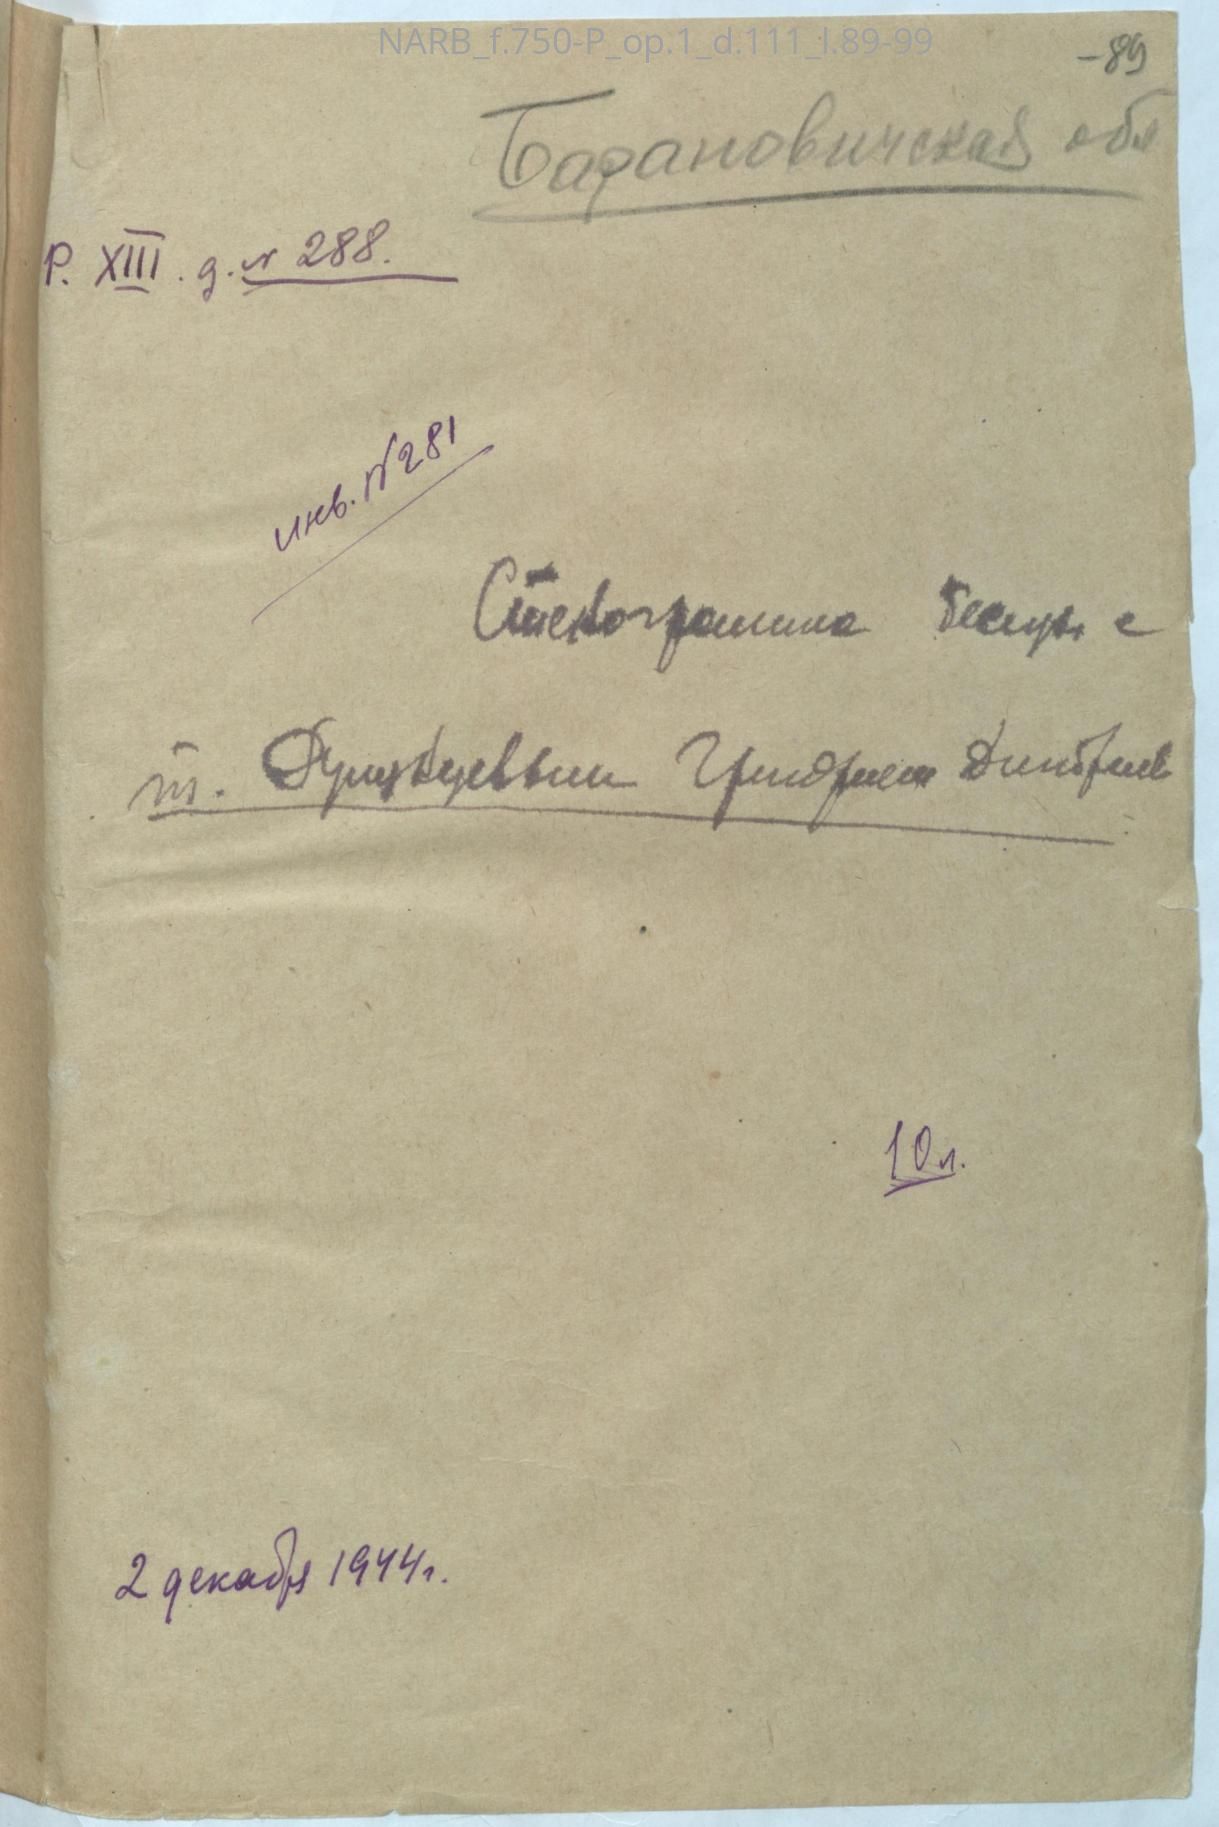 NARB_f.750-P_op.1_d.111_l.89-99
-89
Барановичская обл
Р. XIII. д. № 288.
инв. №281
Стенограмма беседы с
т. Григорием Дмитриев
10 л.
2 декабря 1944 г.